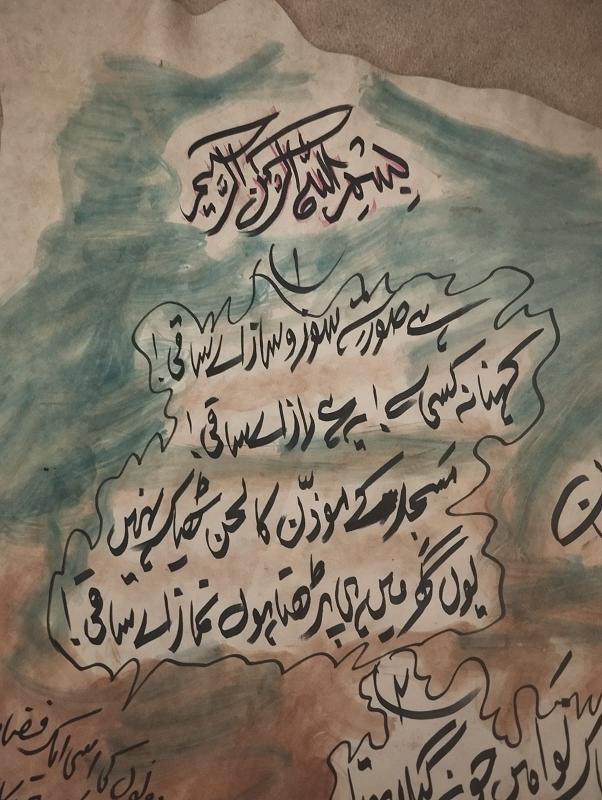 بسم اللہ الرحمن الرحیم
۱
ہے صورت سوز و ساز اے ساقی!
کہنا نہ کسی سے! یہ ہے راز اے ساقی!
مسجد کے موذّن کا لحن ٹھیک نہیں
یوں گھر میں ہی پڑھتا ہوں نماز اے ساقی!
۲